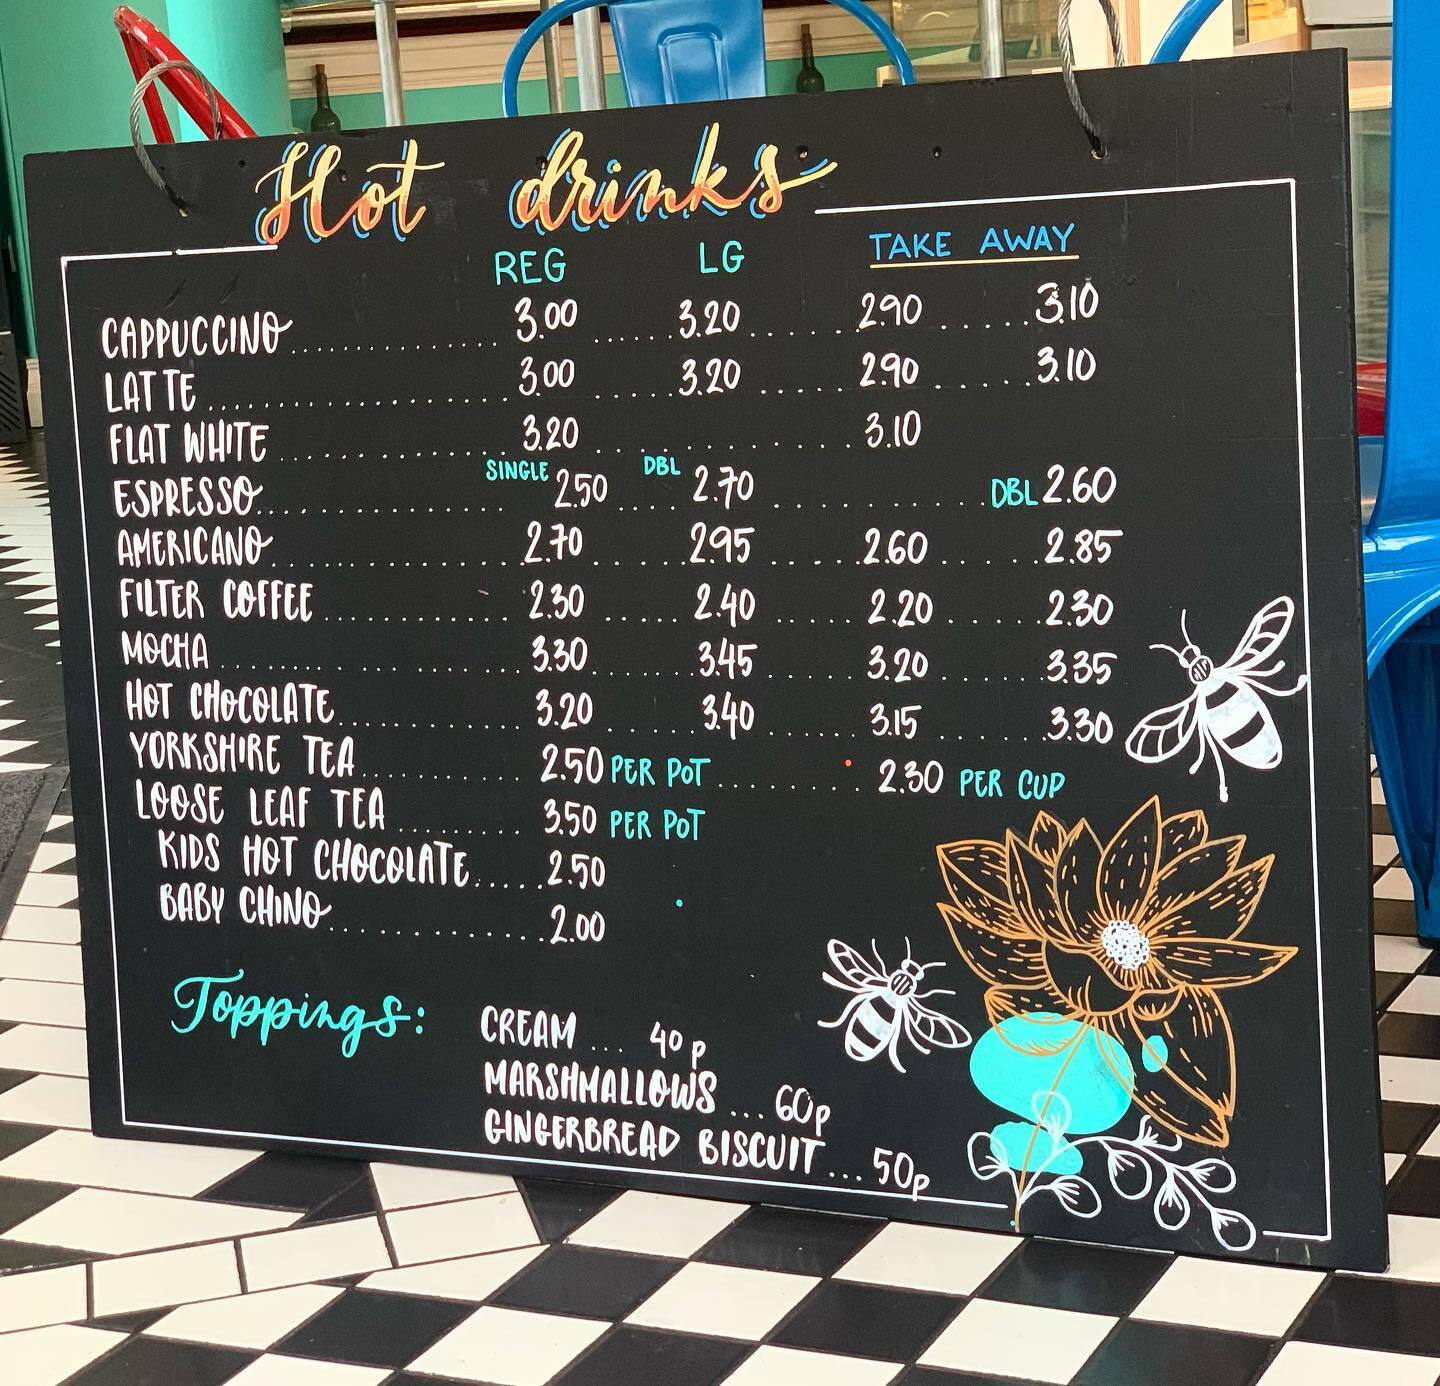 Hot drinks
REG LG TAKE AWAY
CAPPUCCINO 3.00 3.20 2.90 3.10
LATTE 3.00 3.20 2.90 3.10
FLAT WHITE 3.20 3.10
ESPRESSO SINGLE 2.50 DBL 2.70 DBL 2.60
AMERICANO 2.70 2.95 2.60 2.85
FILTER COFFEE 2.30 2.40 2.20 2.30
MOCHA 3.30 3.45 3.20 3.35
HOT CHOCOLATE 3.20 3.40 3.15 3.30
YORKSHIRE TEA 2.50 PER POT 2.30 PER CUP
LOOSE LEAF TEA 3.50 PER POT
KIDS HOT CHOCOLATE 2.50
BABY CHINO 2.00
Toppings: CREAM ... 40p
MARSHMALLOWS ... 60p
GINGERBREAD BISCUIT ... 50p